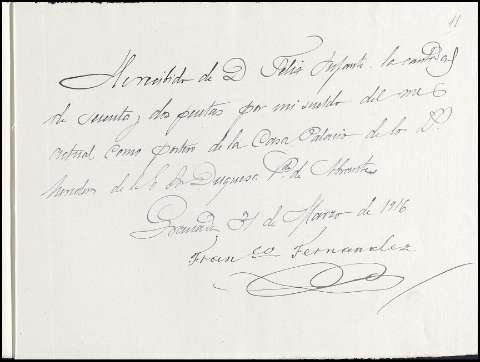 11
He recibido de D. Felix Infante la cantidad
de sesenta y dos pesetas por mi sueldo del mes
actual como portero de la Casa Palacio de los
herederos de la E. Duquesa Vda. de Abrantes
Granada 31 de Marzo de 1916
Franco Fernandez